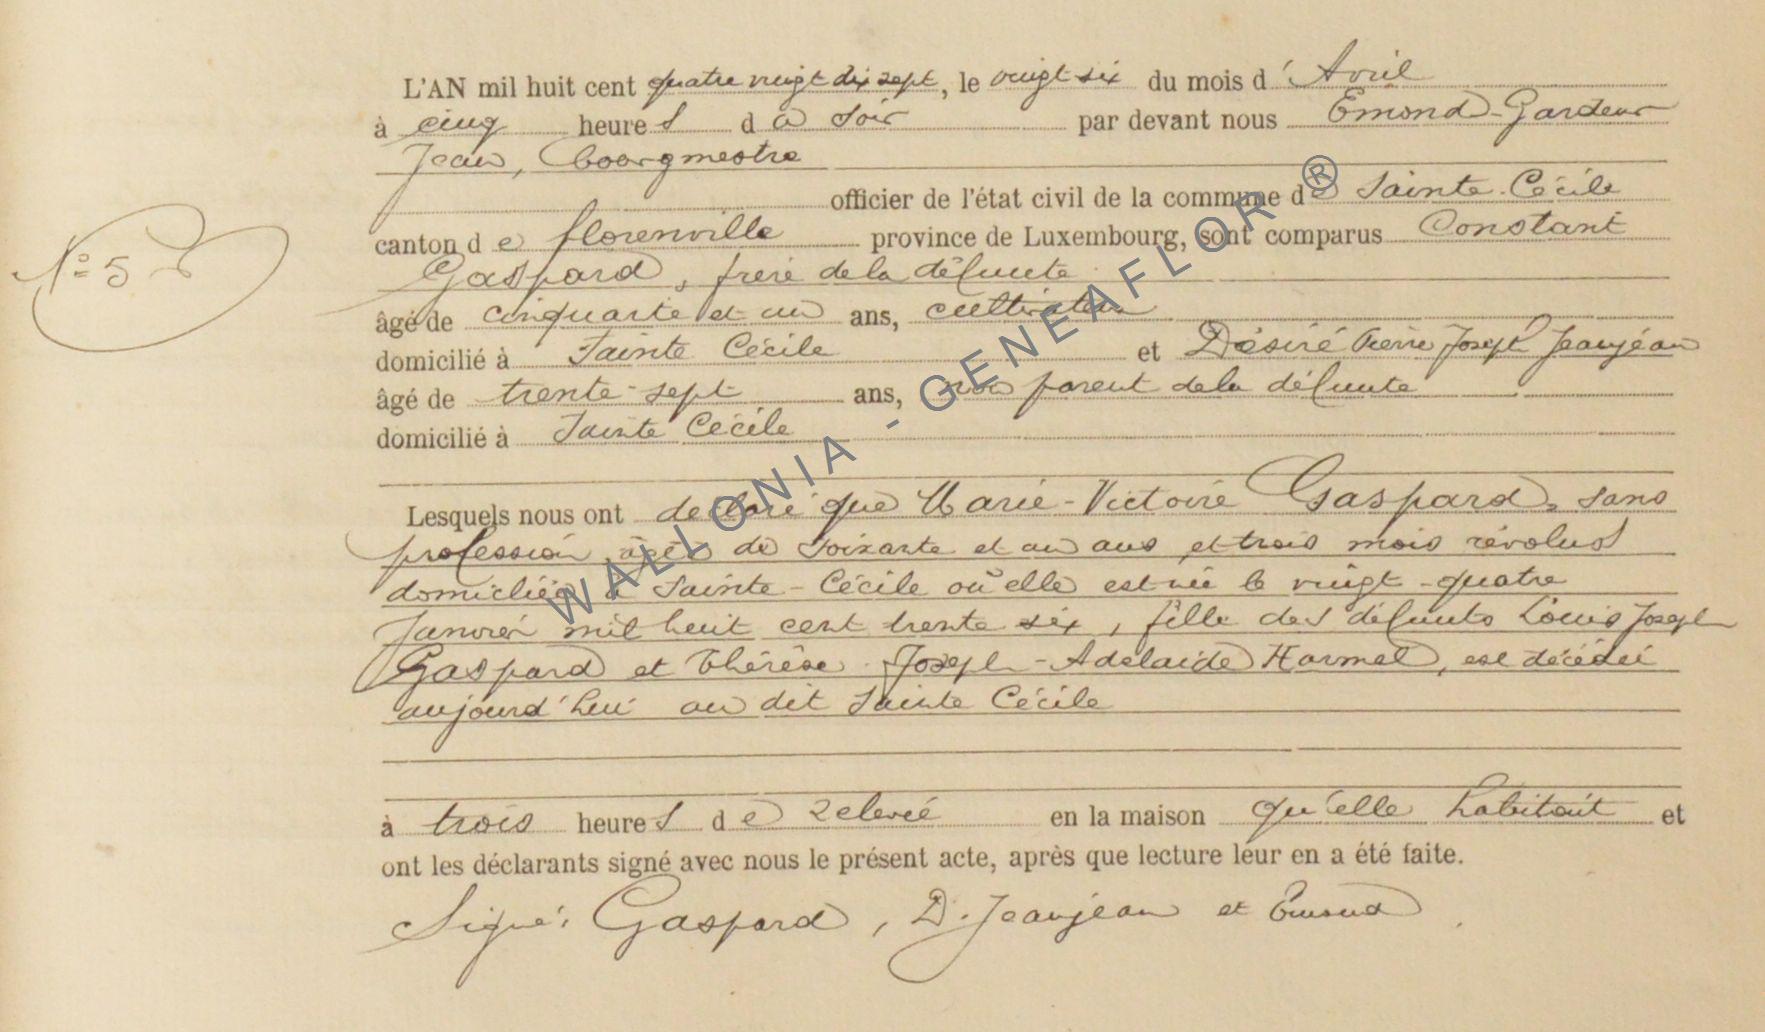 L'AN mil huit cent quatre vingt dix sept, le vingt six du mois d'Avril
à cinq heures du soir par devant nous Emond-Gardeur
Jean, bourgmestre
officier de l'état civil de la commune de Sainte-Cécile
canton de florenville province de Luxembourg, sont comparus Constant
N° 5
Gaspard, frère de la défunte
âgé de cinquante et un ans, cultivateur
domicilié à Sainte Cécile et Désiré Pierre Joseph Jeanjean
âgé de trente-sept ans, non parent de la défunte
domicilié à Sainte Cécile
WALLONIA - GENEAFLOR ®
Lesquels nous ont déclaré que Marie-Victoire Gaspard, sans
profession, âgée de soixante et un ans et trois mois révolus
domiciliée à Sainte-Cécile où elle est née le vingt-quatre
Janvier mil huit cent trente six, fille des défunts Louis Joseph
Gaspard et Thérèse Joseph-Adelaïde Harmel, est décédée
aujourd'hui au dit Sainte Cécile
à trois heures de relevée en la maison qu'elle habitait et
ont les déclarants signé avec nous le présent acte, après que lecture leur en a été faite.
Signé: Gaspard, D. Jeanjean et Emond